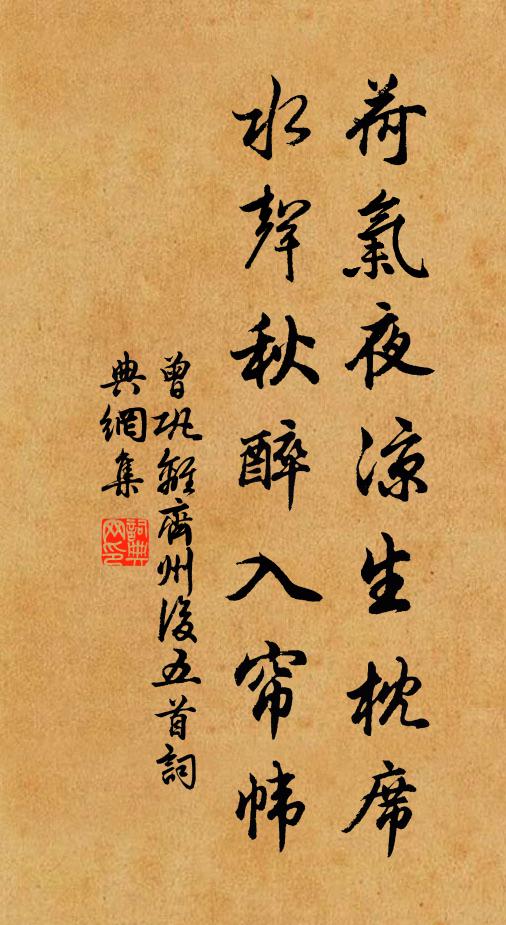 荷氣夜涼生枕席
水聲秋醉入帘幃
曾巩離齊州後五首詞
典網集
詞典
网印